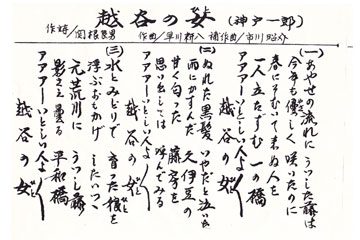 越谷の女 (神戸一郎)
作詩/関根長男 作曲/早川耕八 補作曲/市川昭介
(一)
あやせの流れに うつした藤は
今年も優しく 咲いたのに
春にそむいて 来ぬ人を
一人立たずむ 一の橋
アアア―いとしい人よ
越谷の女
(二)
ぬれた黒髪 いやだと泣いた
雨にかすんだ 久伊豆の
甘く匂った 藤の字を
思い出しては 呼んでみる
アアア―いとしい人よ
越谷の女
(三)
水とみどりで 育った彼を
浮ぶおもかげ したいつゝ
元荒川に うつし藤
影さえ曇る 平和橋
アアア―いとしい人よ
越谷の女